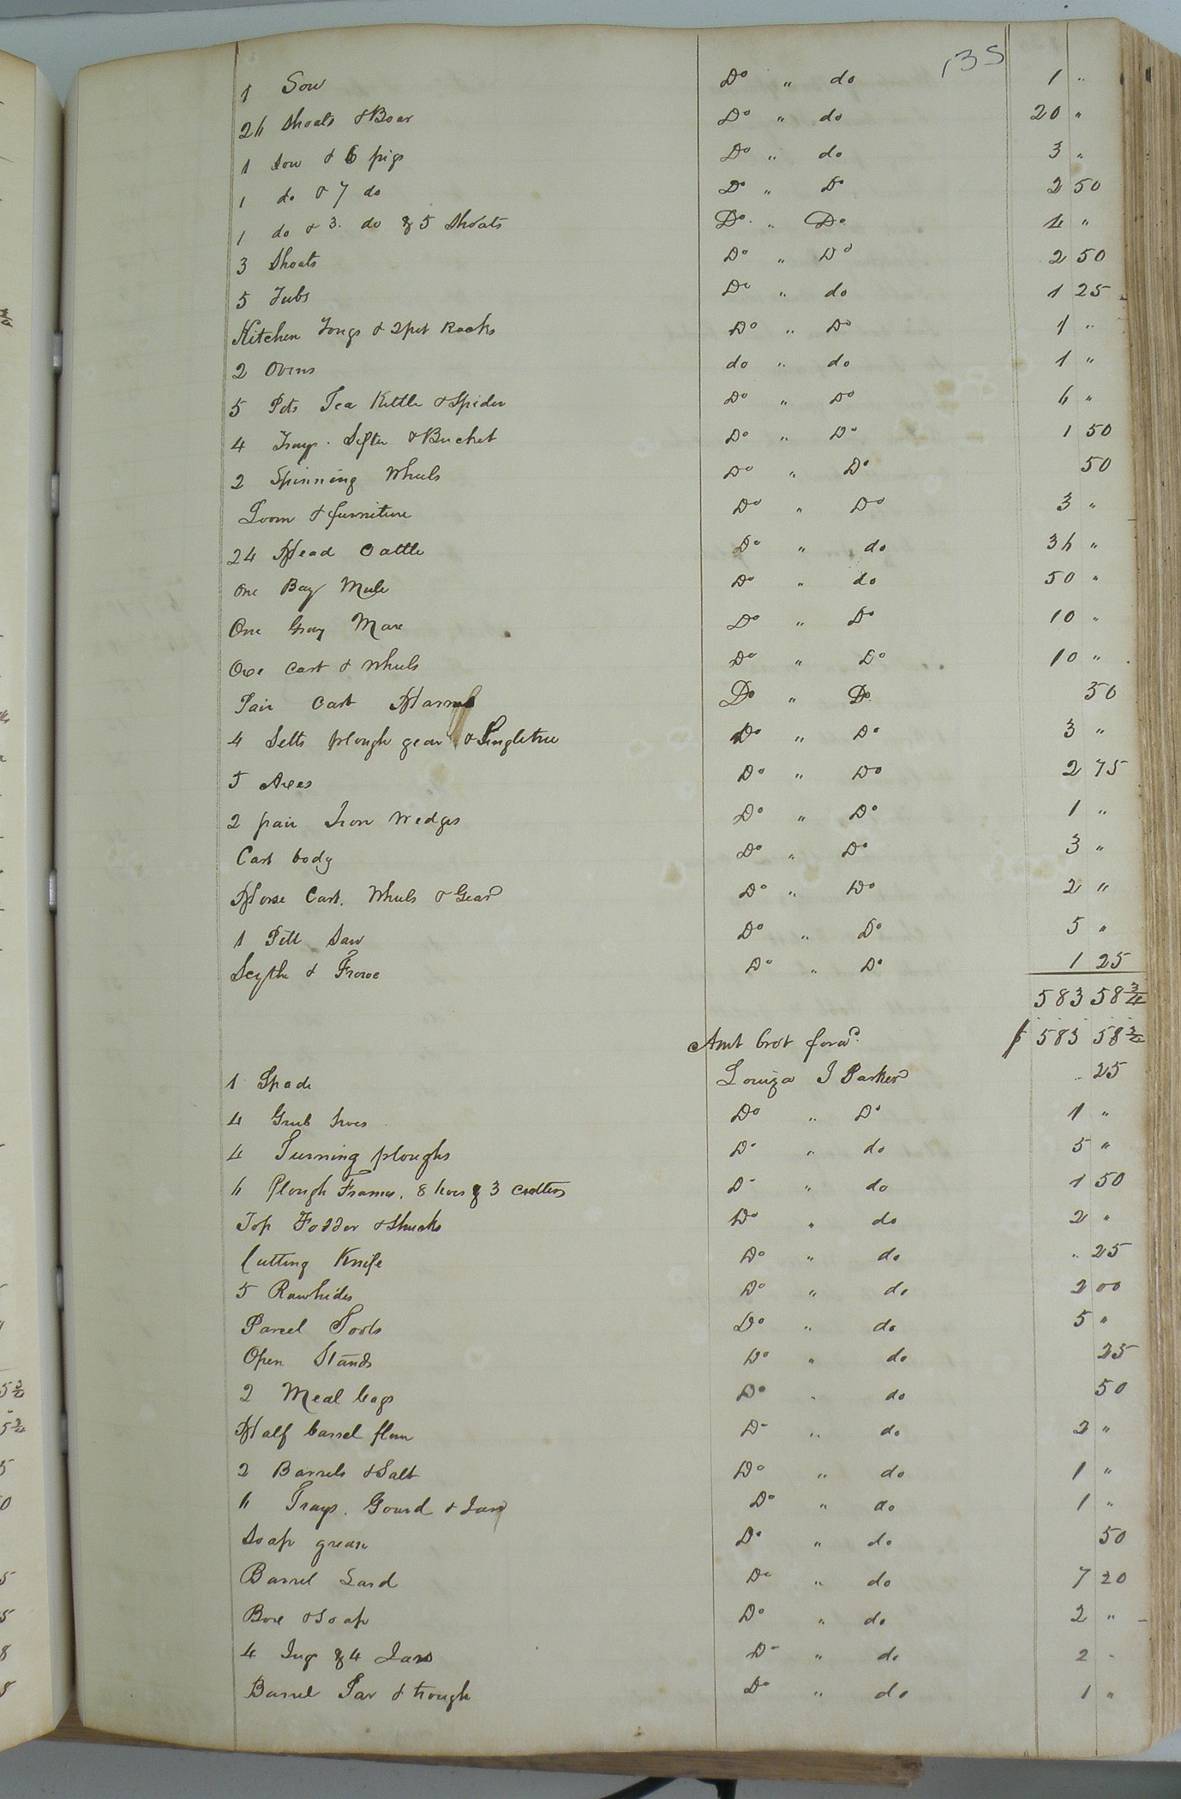 135
1 Sow Do " do 1 "
26 Shoats & Boar Do " do 20 "
1 Sow & 6 pigs Do " do 3 "
1 do & 7 do Do " Do 2 50
1 do & 3 do & 5 Shoats Do " Do 4 "
3 Shoats Do " Do 2 50
5 Tubs Do " do 1 25
Kitchen Tongs & 2 pot Racks Do " Do 1 "
2 Ovens do " do 1 "
5 Pots Tea Kettle & Spider Do " Do 6 "
4 Trays. Sifter & Bucket Do " Do 1 50
2 Spinning Wheels Do " Do 50
Loom & furniture Do " Do 3 "
24 Head Cattle Do " do 36 "
One Bay Mule Do " do 50 "
One Gray Mare Do " Do 10 "
Oxe Cart & Wheels Do " Do 10 "
Pair Cart Harness Do " Do 50
4 Setts plough gear & Singletree Do " Do 3 "
5 Axes Do " Do 2 75
2 pair Iron Wedges Do " Do 1 "
Cart body Do " Do 3 "
Horse Cart. Wheels & Gear Do " Do 2 "
1 Pitt Saw Do " Do 5 "
Scythe & Frowe Do " Do 1 25
583 58 3/4
Amt brot forwd $ 583 58 3/4
1 Spade Louiza J Parker " 25
4 Grub hoes Do " Do 1 "
4 Turning ploughs Do " do 5 "
6 Plough Frames. 8 hoes & 3 Do " do 1 50
Top Fodder & Shucks Do " do 2 "
Cutting Knife Do " do " 25
5 Rawhides Do " do 2 00
Parcel Tools Do " do 5 "
Open Stands Do " do 25
2 Meal bags Do " do 50
Half barrel flour Do " do 2 "
2 Barrels & Salt Do " do 1 "
6 Trays. Gourd & Jar Do " do 1 "
Soap grease Do " do 50
Barrel Lard Do " do 7 20
Boxe & Soap Do " do 2 "
4 Jug & 4 Jars Do " do 2 "
Barrel Tar & trough Do " do 1 "